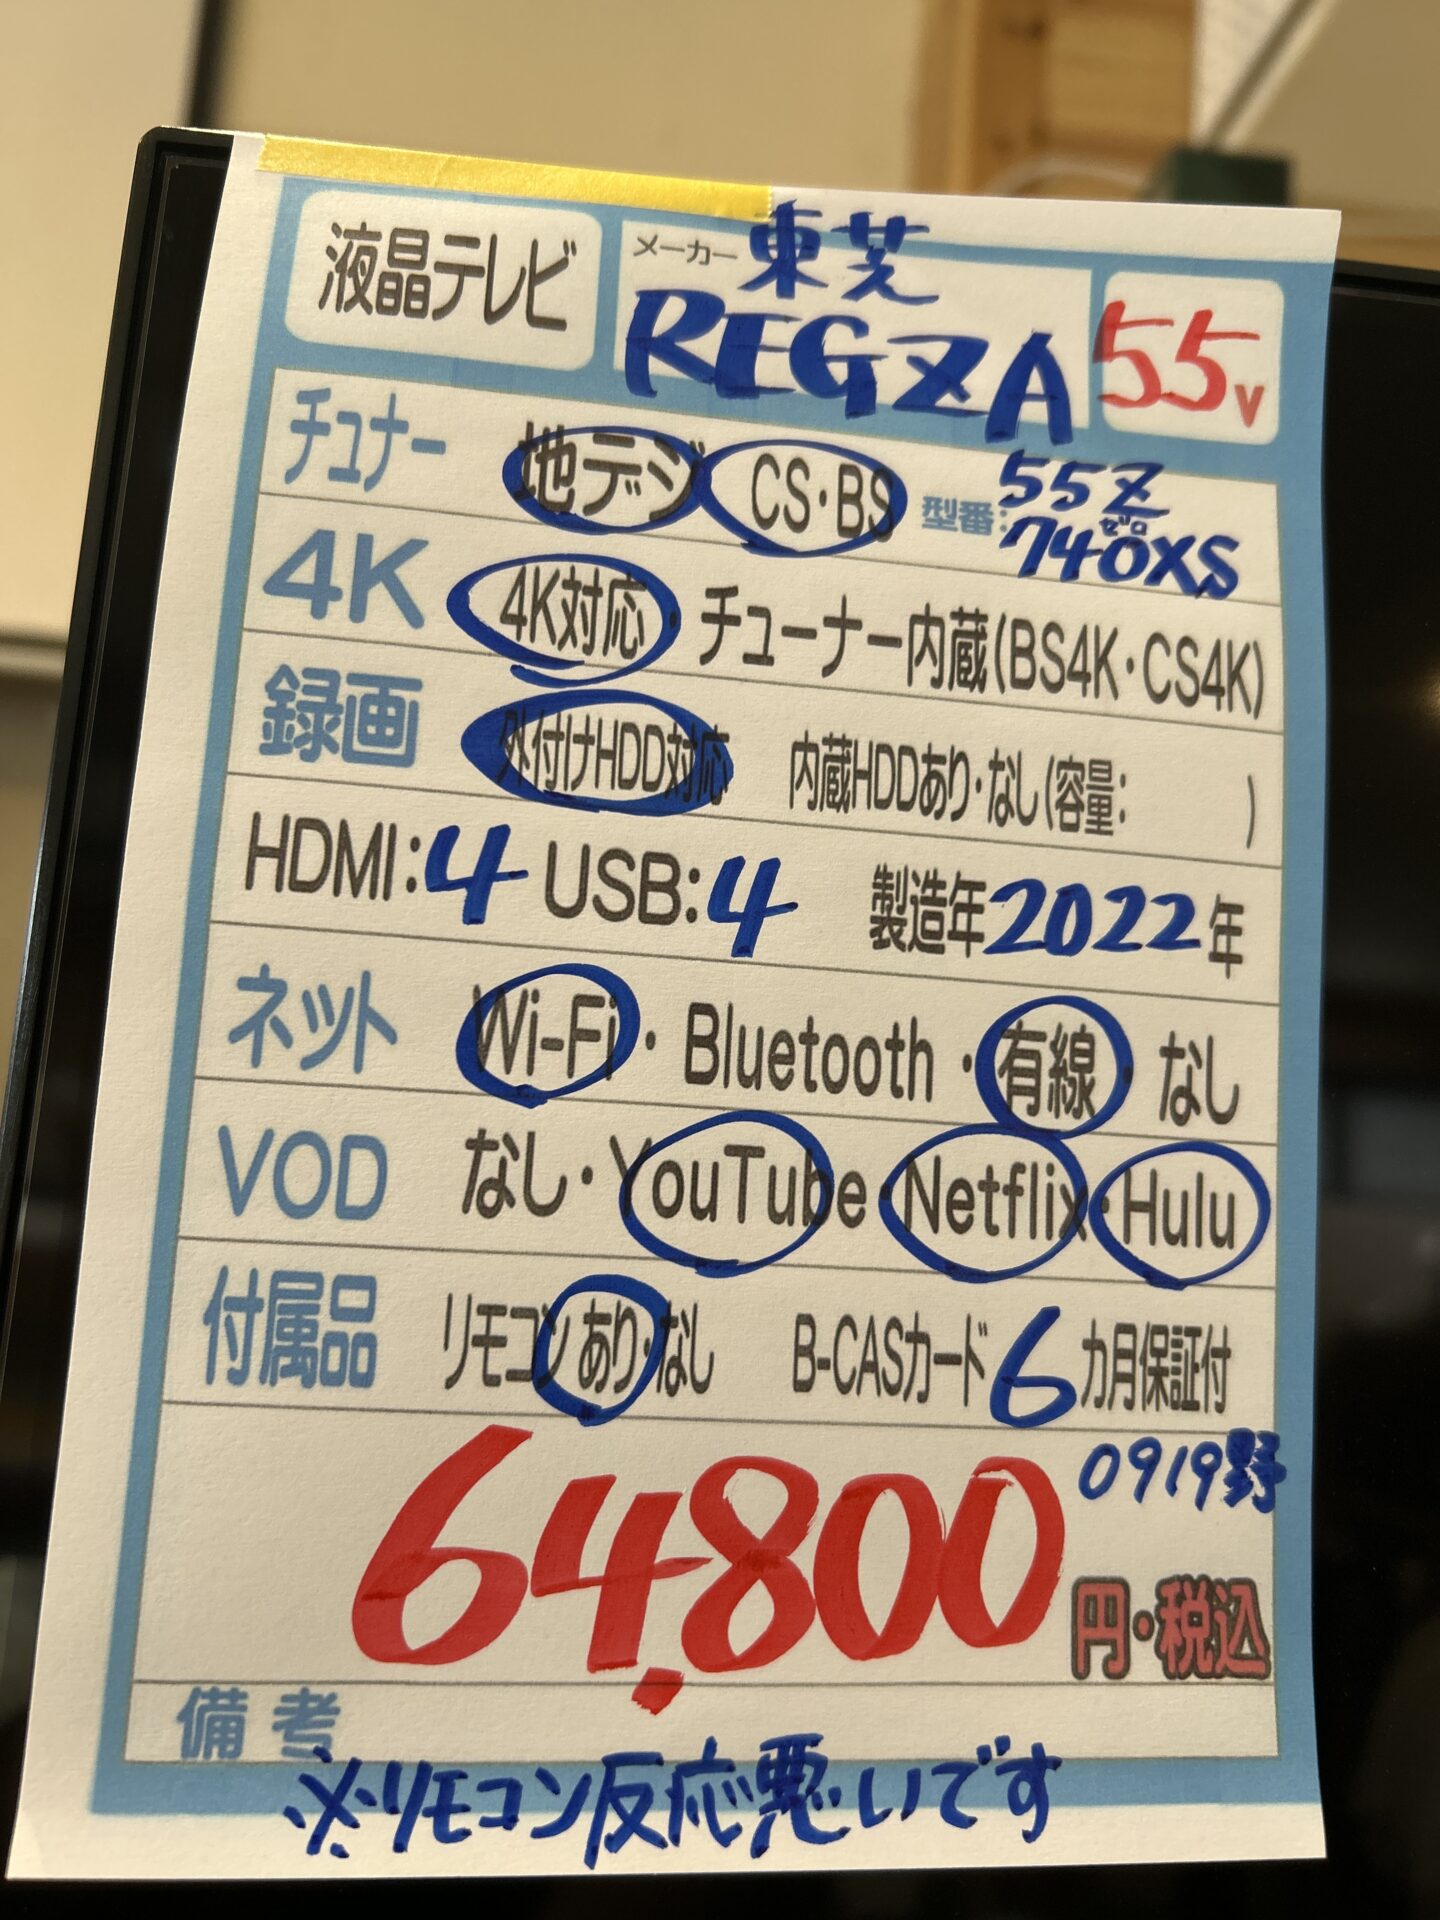 液晶テレビ メーカー 東芝
REGZA 55V
チューナー 地デジ CS・BS 型番: 55Z
740XS
ゼロ
4K 4K対応・チューナー内蔵(BS4K・CS4K)
録画 外付けHDD対応 内蔵HDDあり・なし(容量: )
HDMI:4 USB:4 製造年2022年
ネット Wi-Fi・Bluetooth・有線・なし
VOD なし・YouTube・Netflix・Hulu
付属品 リモコン あり・なし B-CASカード 6カ月保証付
0919野
64,800円・税込
備考
※リモコン反応悪いです